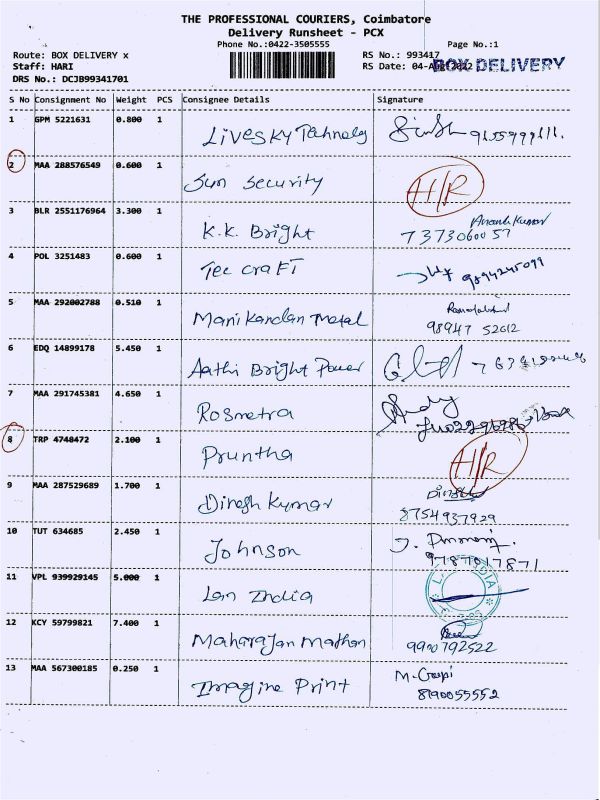 THE PROFESSIONAL COURIERS, Coimbatore
Delivery Runsheet - PCX
Phone No.:0422-3505555 Page No.:1
Route: BOX DELIVERY x RS No.: 993417
Staff: HARI RS Date: 04-Aug-2022 BOX DELIVERY
DRS No.: DCJB99341701
S No Consignment No Weight PCS Consignee Details Signature
1 GPM 5221631 0.800 1 Livesky Technology
2 MAA 288576549 0.600 1 Sun Security H/R
3 BLR 2551176964 3.300 1 K.K. Bright Ananth Kumar
7373060057
4 POL 3251483 0.600 1 Tec craFT 9894245099
5 MAA 292002788 0.510 1 Mani Kandan Metal
98947 52612
6 EDQ 14899178 5.450 1 Aathi Bright Power
7 MAA 291745381 4.650 1 Rosmetra
8 TRP 4748472 2.100 1 Pruntha H/R
9 MAA 287529689 1.700 1 Dinesh Kumar
8754937929
10 TUT 634685 2.450 1 Johnson
9787017871
11 VPL 939929145 5.000 1 Lan India
12 KCY 59799821 7.400 1 Maharajan Mathan
9900792522
13 MAA 567300185 0.250 1 Imagine Print M. Gopi
8190055552